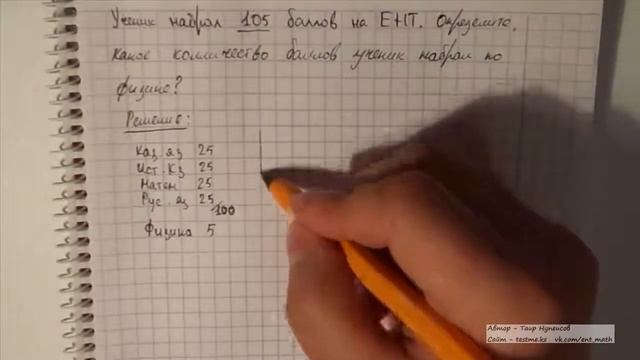 Ученик набрал 105 баллов на ЕНТ. Определите,
какое количество баллов ученик набрал по
физике?
Решение:
Каз. яз 25
Ист. Кз 25
Матем 25
Рус. яз 25
/100
Физика 5
Автор - Таир Нуписов
Сайт - testme.kz vk.com/ent_math